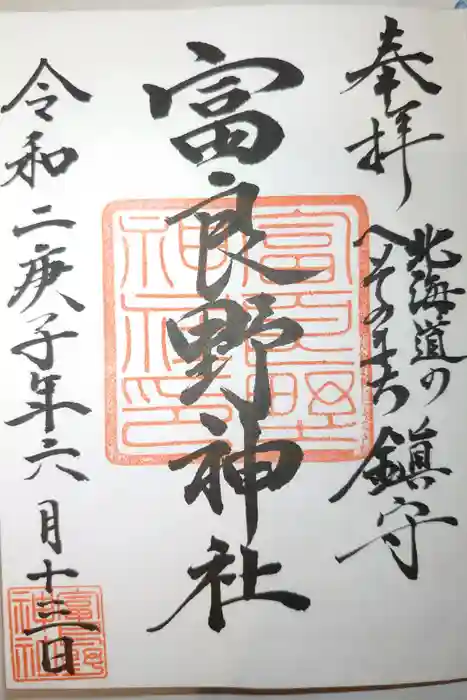 奉拝
北海道の
へその富良野
鎮守
富良野神社
令和二庚子年六月十三日
富良野神社印
富良野神社